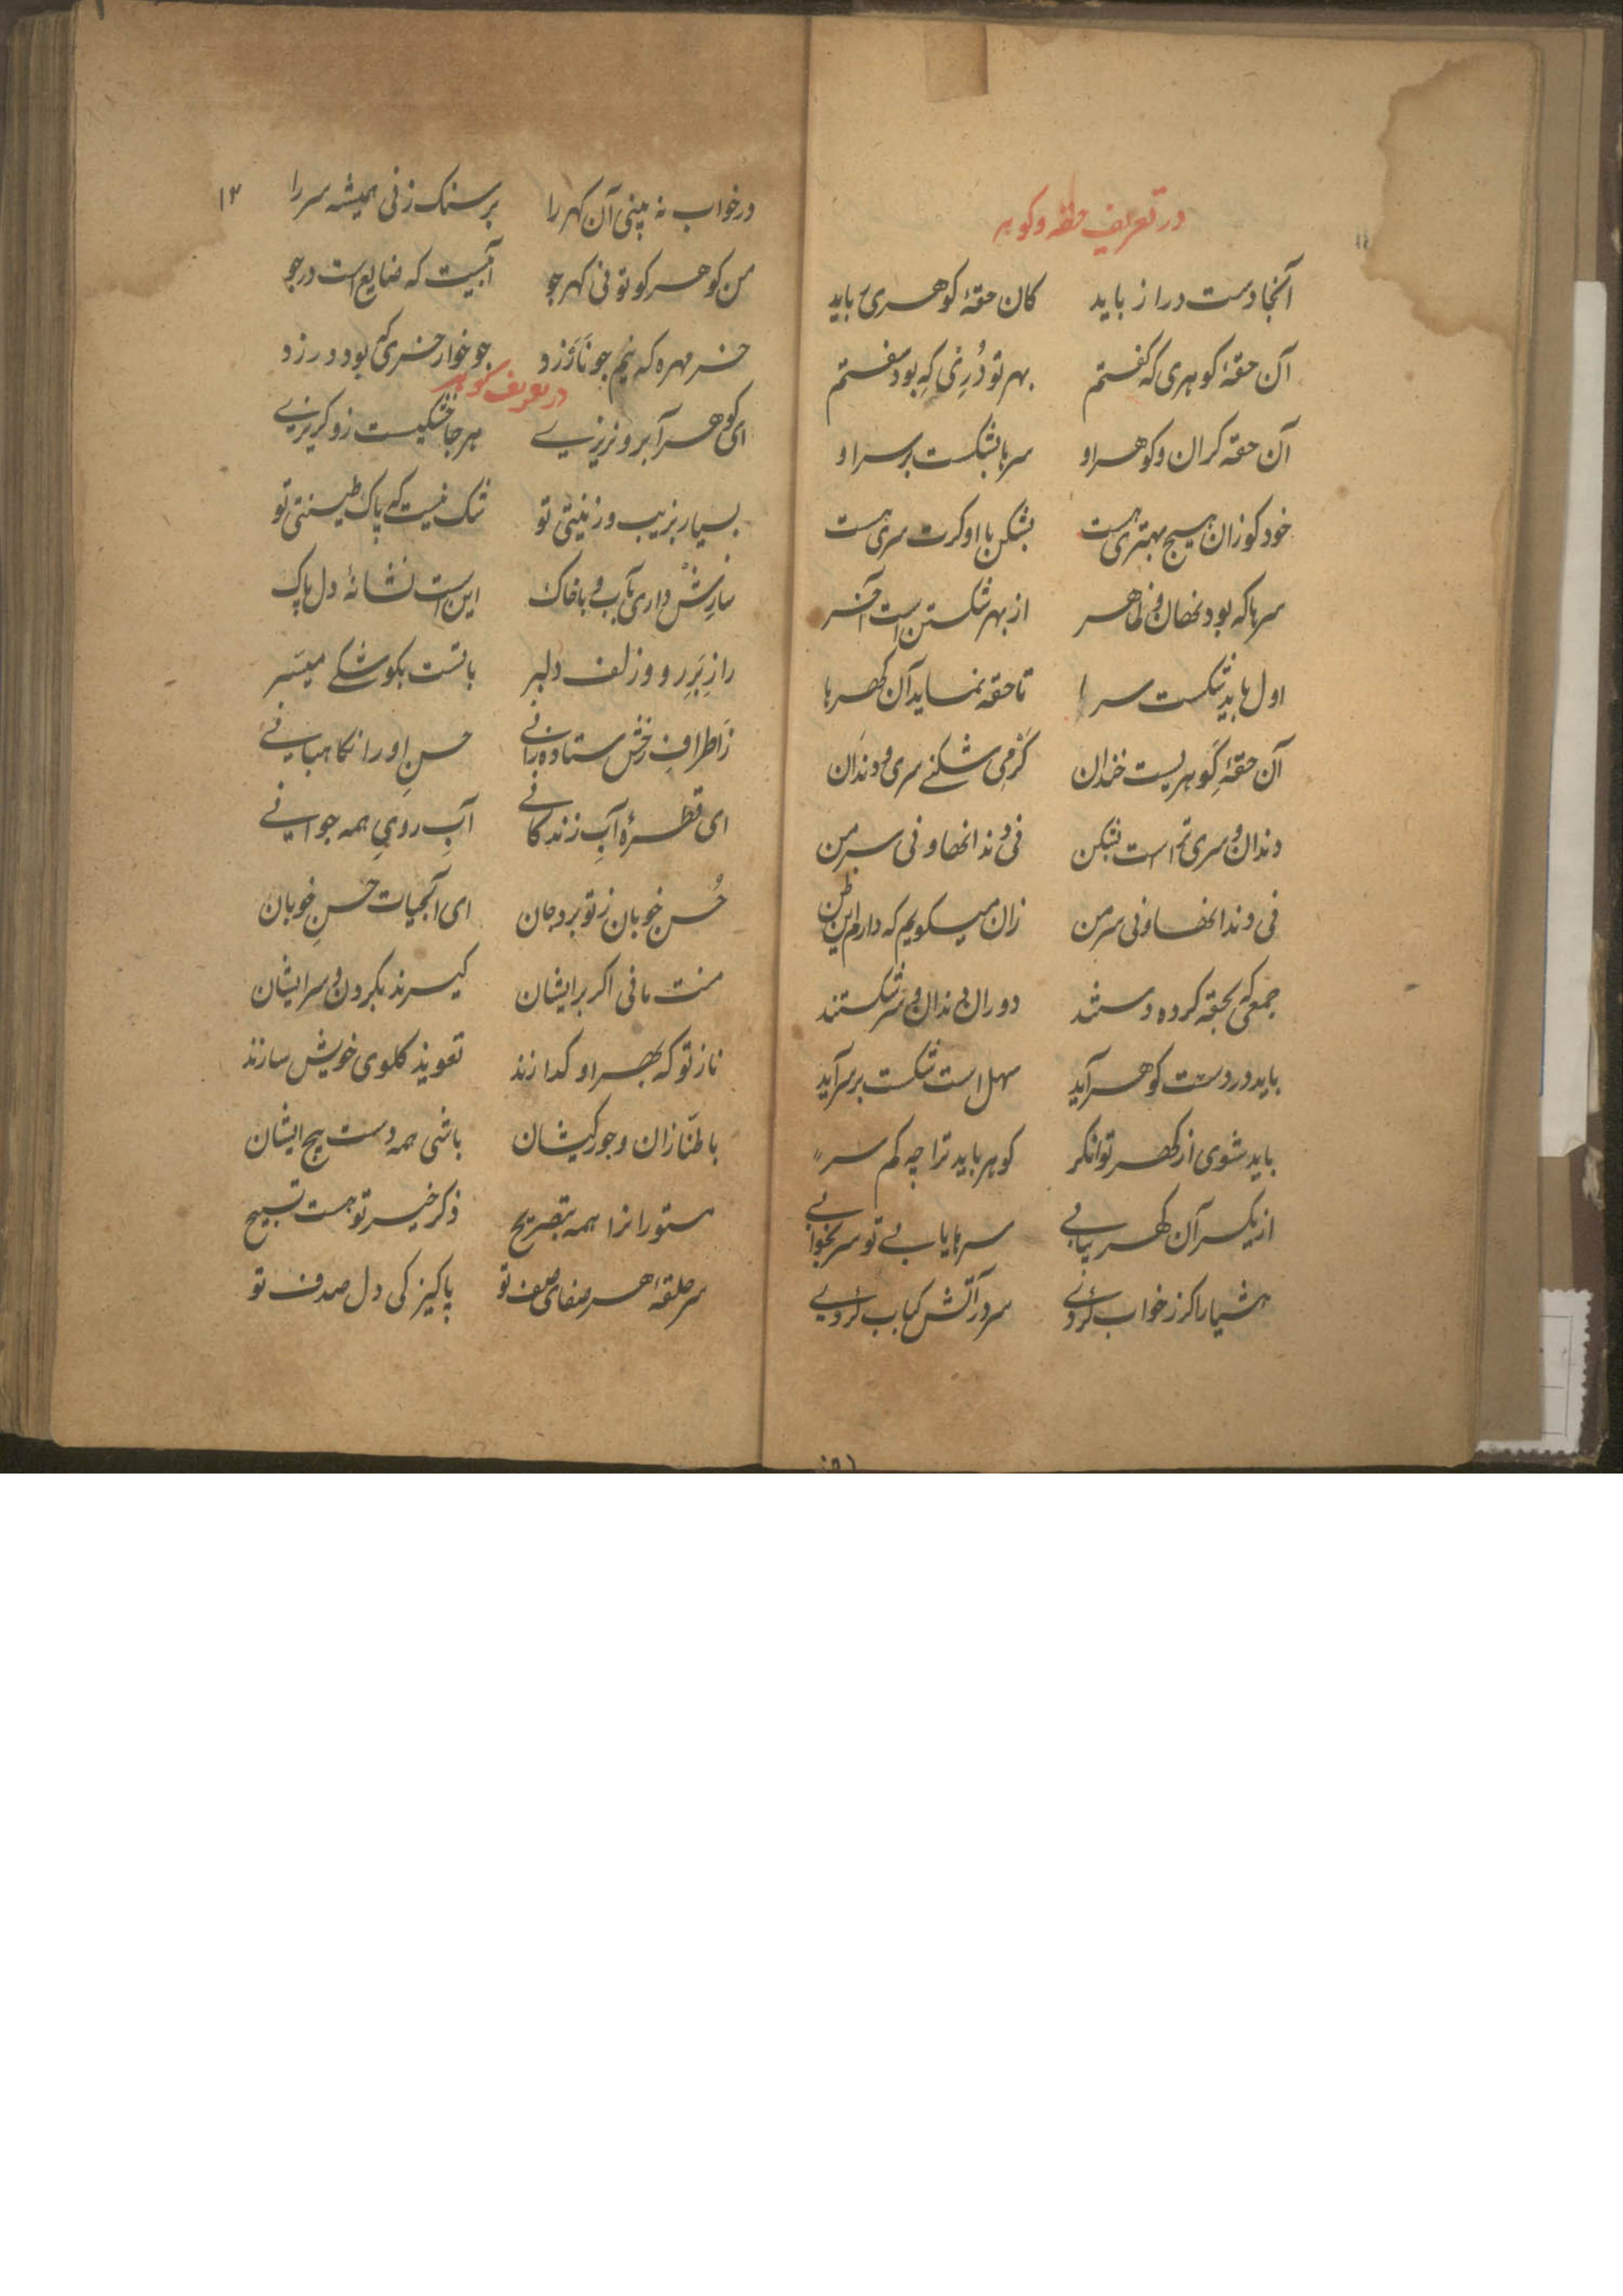 در تعریف حقه و کوهر
آنجا دست دراز باید کان حقهٔ کوهری باید
آن حقهٔ کوهری که کفتم بهر تو دُرِی که بود سفتم
آن حقه کران و کوهر او سرها بشکست بر سر او
خود کو زان هیچ بهتری هست بشکن با او کرت سری هست
سرها که بود نهان و ظاهر از بهر شکستن است آخر
اول باید شکست سر را تا حقه نماید آن کهرها
آن حقهٔ کَوهریست خندان کَر می شکنے سری و دندان
دندان و سری تراست بشکن نی دندانها و نی سر من
نی دندانها و نی سر من زان میکویم که دارم این ظن
جمعی که بحقه کرده دستند دوران دندان و سر شکستند
باید در دست کوهر آید سهل است شکست بر سر آید
باید شوی از کهر توانکر کوهر باید ترا چه کم سر
از یکسر آن کهر نیابے سرها یابے تو سر بخوابے
هشیار اکر ز خواب کردے سر در آتش کباب کردے
۱۳
در خواب نه بینی آن کهر را بر سنک زنی همیشه سر را
من کوهر کو تو نی کهر جو آبیست که ضایع است در جو
خر مهره که نیم جو نَاَرزد جو خوار خری که بود درزد
در تعریف کوهر
ای کوهر آبرو نریزے هر جا خشکیست زو کریزے
بسیار بزیب و زینتی تو شک نیست که پاک طینتی تو
سازِش داری بآب و با خاک این است نشانهٔ دل پاک
راز بَرِ رو و زلف دلبر باتست بکو شکے میسَر
زَاطرافِ رخش ستاده رانے حسنِ او را نکاهبانے
ای قطرهٔ آبِ زندکانے آبِ رویِ همه جوانے
حُسن خوبان ز تو برد جان ای آبحیات حسنِ خوبان
منت مانی اکر بر ایشان کیرند بکردن و سر ایشان
ناز تو که بهر او کدازند تعویذ کلوی خویش سازند
با طنّازان و جور کیشان باشی همه دست پیچ ایشان
مستورانرا همه بتصریح ذکر خیر تو هست تسبیح
سر حلقهٔ هر صفای صف تو پاکیزکی دل صدف تو